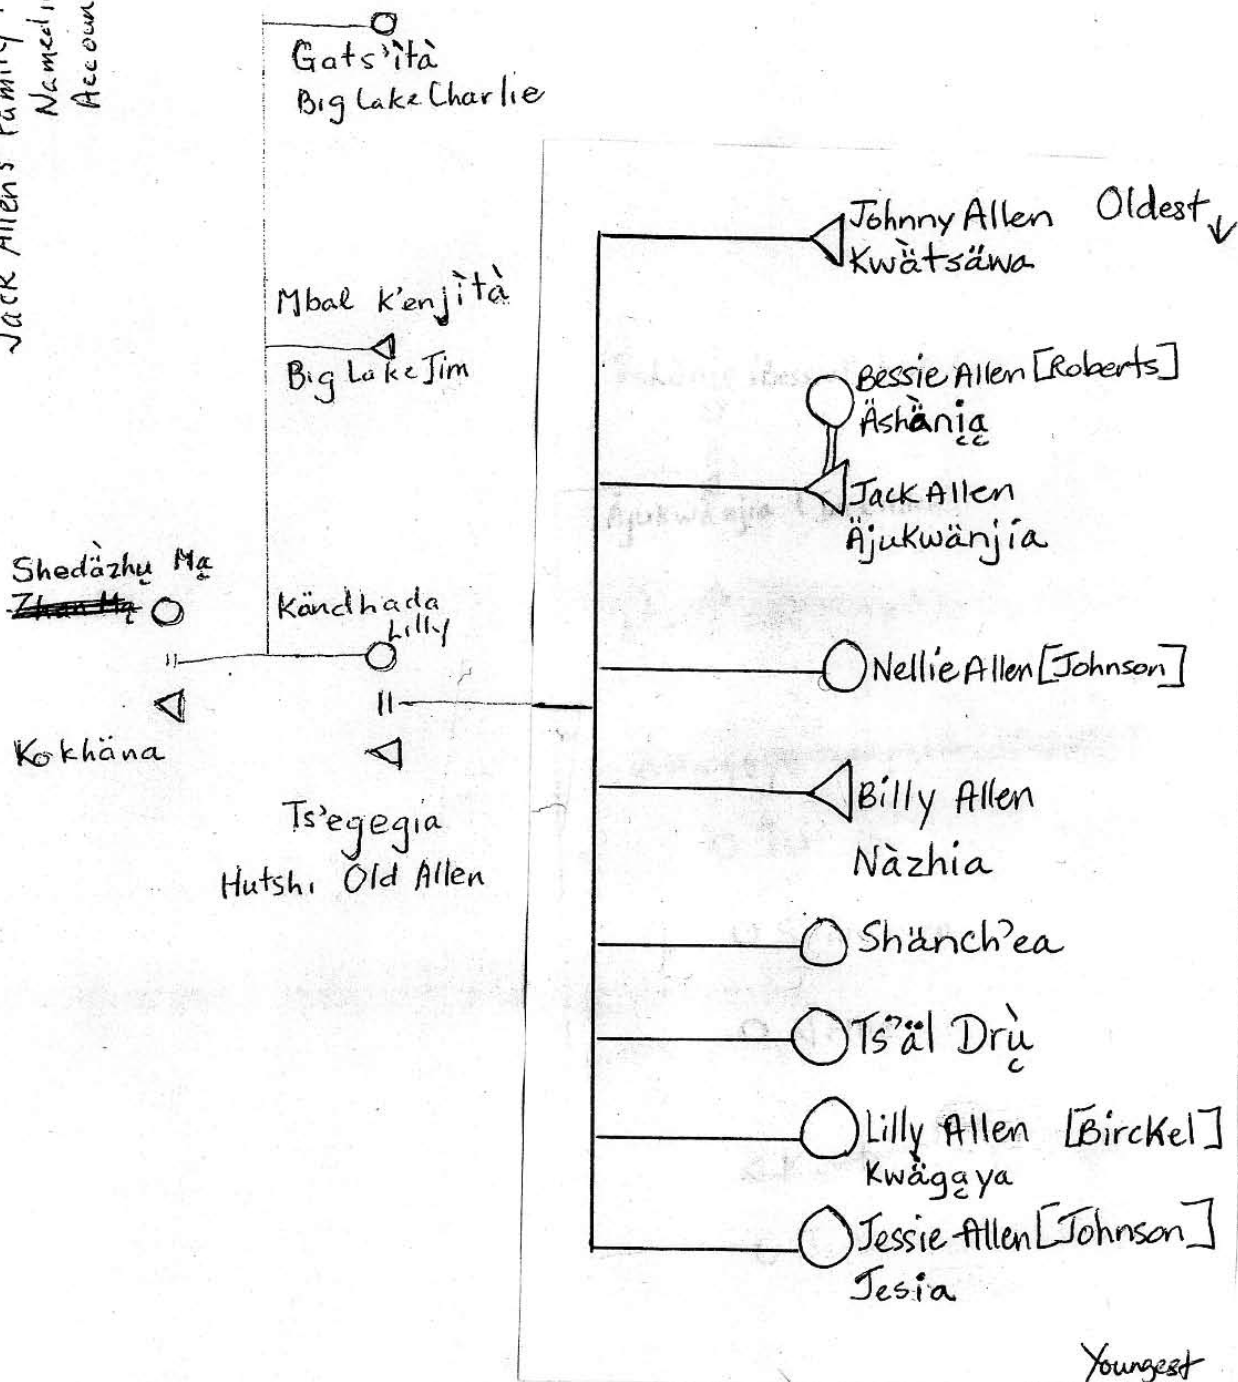 Jack Allen's Family
Gats'ìtà
Big Lake Charlie
Mbal K'enjìtà
Big Lake Jim
Shedä̀zhų Mą
Kändhada
Lilly
Kokhäna
Ts'egegia
Hutshi Old Allen
Johnny Allen Oldest ↓
Kwä̀tsäwa
Bessie Allen [Roberts]
Äshä̀nįą
Jack Allen
Äjukwänjía
Nellie Allen [Johnson]
Billy Allen
Nàzhia
Shänch'ea
Ts'äl Drų̀
Lilly Allen [Birckel]
Kwä̀gąya
Jessie Allen [Johnson]
Jesia
Youngest